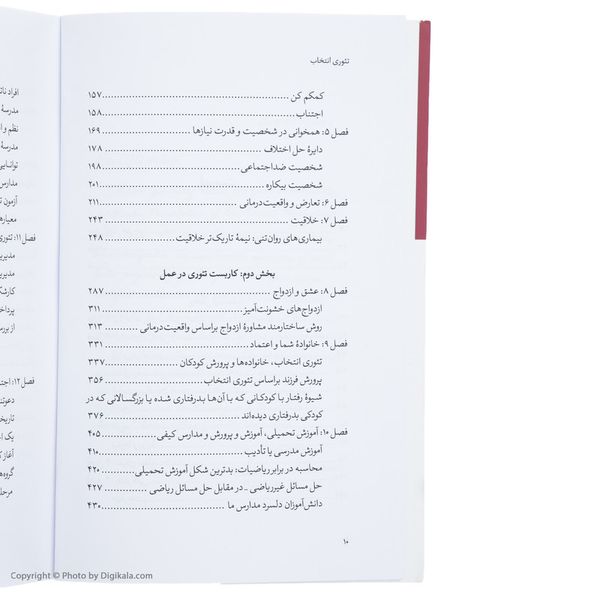 تئوری انتخاب
کمکم کن ........ ۱۵۷
اجتناب ........ ۱۵۸
فصل ۵: همخوانی در شخصیت و قدرت نیازها ........ ۱۶۹
دایرهٔ حل اختلاف ........ ۱۷۸
شخصیت ضداجتماعی ........ ۱۹۸
شخصیت بیکاره ........ ۲۰۱
فصل ۶: تعارض و واقعیت‌درمانی ........ ۲۱۱
فصل ۷: خلاقیت ........ ۲۴۳
بیماری‌های روان‌تنی: نیمهٔ تاریک‌تر خلاقیت ........ ۲۴۸
بخش دوم: کاربست تئوری در عمل
فصل ۸: عشق و ازدواج ........ ۲۸۷
ازدواج‌های خشونت‌آمیز ........ ۳۱۱
روش ساختارمند مشاورهٔ ازدواج براساس واقعیت‌درمانی ........ ۳۱۳
فصل ۹: خانوادهٔ شما و اعتماد ........ ۳۳۱
تئوری انتخاب، خانواده‌ها و پرورش کودکان ........ ۳۳۷
پرورش فرزند براساس تئوری انتخاب ........ ۳۵۶
شیوهٔ رفتار با کودکانی که با آن‌ها بدرفتاری شده یا بزرگسالانی که در
کودکی بدرفتاری دیده‌اند ........ ۳۷۶
فصل ۱۰: آموزش تحمیلی، آموزش و پرورش و مدارس کیفی ........ ۴۰۵
آموزش مدرسی یا تأدیب ........ ۴۱۰
محاسبه در برابر ریاضیات: بدترین شکل آموزش تحمیلی ........ ۴۲۰
حل مسائل غیرریاضی ـ در مقابل حل مسائل ریاضی ........ ۴۲۷
دانش‌آموزان دلسرد مدارس ما ........ ۴۳۰
۱۰
افراد
مدرسهٔ
نظم و
مدرسهٔ
توانایی
مدارس
آزمون
معیارها
فصل ۱۱: تئوری
مدیریت
مدیریت
پرداخ
از بررس
فصل ۱۲:
یک
آغاز
مرحل
Copyright © Photo by Digikala.com